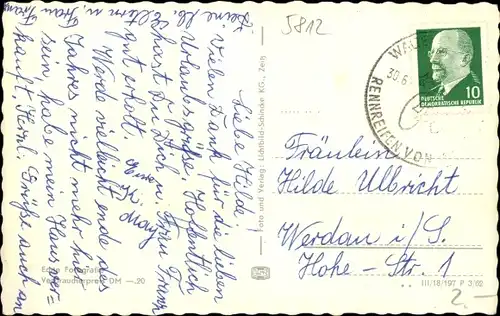 Liebe Hilde!
Vielen Dank für die lieben
Urlaubsgrüße. Hoffentlich
hast Du Dich u. Frau Franz
gut erholt. Eure
Werde vielleicht ende des
Jahres nicht mehr hier
sein, habe mein Haus ver-
kauft. Herzl. Grüße auch an
Deine lb. Eltern u. Frau Franz
H. May
Echte Fotografie
Verbraucherpreis DM —.20
Foto und Verlag: Lichtbild-Schincke KG., Zeitz
5812
30.6
RENNREIFEN VON
10
DEUTSCHE
DEMOKRATISCHE REPUBLIK
Fräulein
Hilde Ulbricht
Werdau i/S.
Hohe - Str. 1
III/18/197 P 3/62
2.-